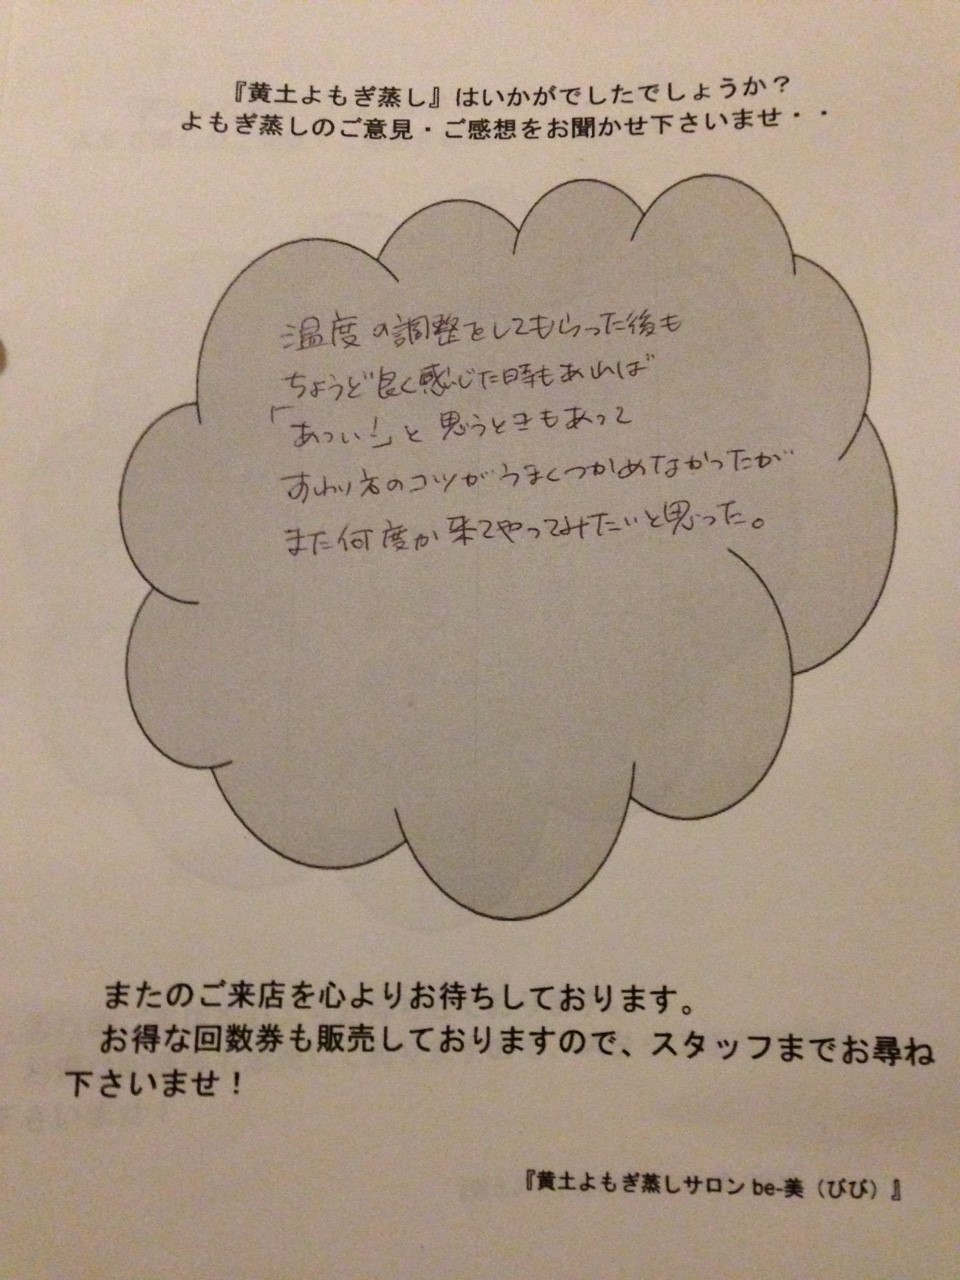 『黄土よもぎ蒸し』はいかがでしたでしょうか？
よもぎ蒸しのご意見・ご感想をお聞かせ下さいませ・・
温度の調整をしてもらった後も
ちょうど良く感じた時もあれば
「あつい！」と思うときもあって
すわり方のコツがうまくつかめなかったが
また何度か来てやってみたいと思った。
またのご来店を心よりお待ちしております。
お得な回数券も販売しておりますので、スタッフまでお尋ね
下さいませ！
『黄土よもぎ蒸しサロン be-美（びび）』